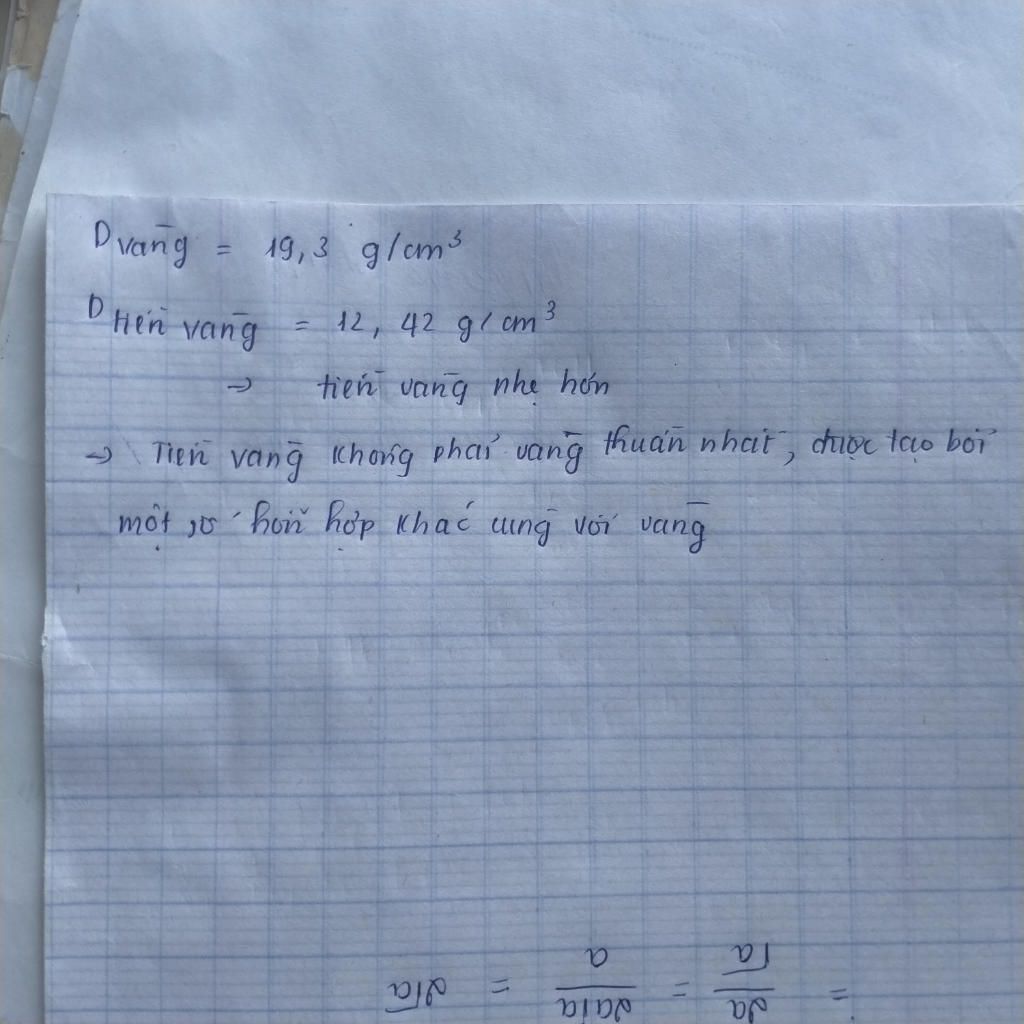 D vàng = 19,3 g/cm³
D tiền vàng = 12,42 g/cm³
→ tiền vàng nhẹ hơn
→ Tiền vàng không phải vàng thuần nhất, được tạo bởi
một số hỗn hợp khác cùng với vàng
= 2a/√a = 2a√a/a = 2√a